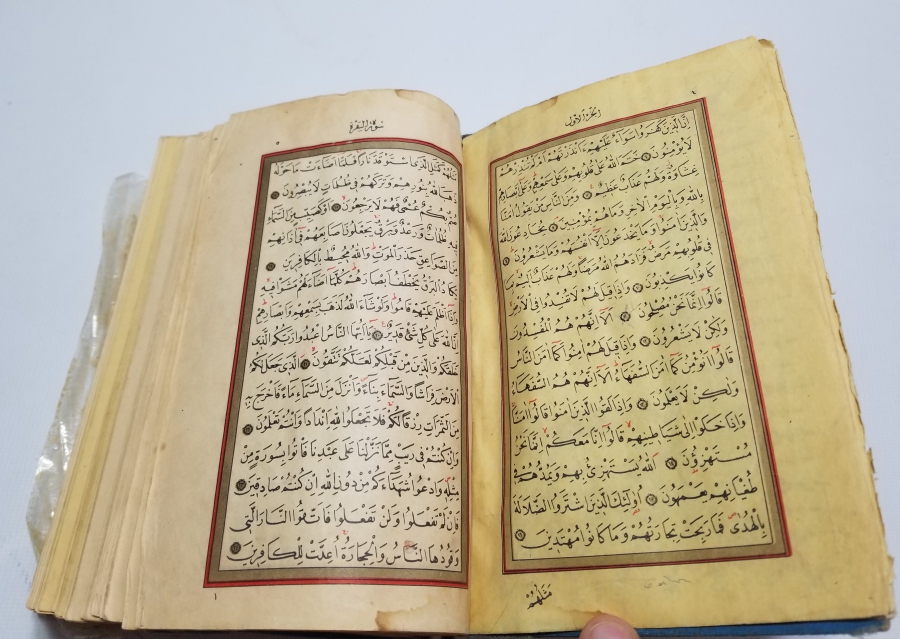 الجزء الاول
٤
اِنَّ الَّذِينَ كَفَرُوا سَوَاءٌ عَلَيْهِمْ ءَاَنْذَرْتَهُمْ اَمْ لَمْ تُنْذِرْهُمْ
لَا يُؤْمِنُونَ خَتَمَ اللهُ عَلٰى قُلُوبِهِمْ وَعَلٰى سَمْعِهِمْ وَعَلٰى اَبْصَارِهِمْ
غِشَاوَةٌ وَلَهُمْ عَذَابٌ عَظِيمٌ وَمِنَ النَّاسِ مَنْ يَقُولُ اٰمَنَّا
بِاللهِ وَبِالْيَوْمِ الْاٰخِرِ وَمَا هُمْ بِمُؤْمِنِينَ يُخَادِعُونَ اللهَ
وَالَّذِينَ اٰمَنُوا وَمَا يَخْدَعُونَ اِلَّا اَنْفُسَهُمْ وَمَا يَشْعُرُونَ
فِى قُلُوبِهِمْ مَرَضٌ فَزَادَهُمُ اللهُ مَرَضًا وَلَهُمْ عَذَابٌ اَلِيمٌ بِمَا
كَانُوا يَكْذِبُونَ وَاِذَا قِيلَ لَهُمْ لَا تُفْسِدُوا فِى الْاَرْضِ
قَالُوا اِنَّمَا نَحْنُ مُصْلِحُونَ اَلَا اِنَّهُمْ هُمُ الْمُفْسِدُونَ
وَلٰكِنْ لَا يَشْعُرُونَ وَاِذَا قِيلَ لَهُمْ اٰمِنُوا كَمَا اٰمَنَ النَّاسُ
قَالُوا اَنُؤْمِنُ كَمَا اٰمَنَ السُّفَهَاءُ اَلَا اِنَّهُمْ هُمُ السُّفَهَاءُ
وَلٰكِنْ لَا يَعْلَمُونَ وَاِذَا لَقُوا الَّذِينَ اٰمَنُوا قَالُوا اٰمَنَّا
وَاِذَا خَلَوْا اِلٰى شَيَاطِينِهِمْ قَالُوا اِنَّا مَعَكُمْ اِنَّمَا نَحْنُ
مُسْتَهْزِؤُنَ اَللهُ يَسْتَهْزِئُ بِهِمْ وَيَمُدُّهُمْ فِى
طُغْيَانِهِمْ يَعْمَهُونَ اُولٰئِكَ الَّذِينَ اشْتَرَوُا الضَّلَالَةَ
بِالْهُدٰى فَمَا رَبِحَتْ تِجَارَتُهُمْ وَمَا كَانُوا مُهْتَدِينَ
مَثَلُهُمْ
سورة البقرة
٥
مَثَلُهُمْ كَمَثَلِ الَّذِى اسْتَوْقَدَ نَارًا فَلَمَّا اَضَاءَتْ مَا حَوْلَهُ
ذَهَبَ اللهُ بِنُورِهِمْ وَتَرَكَهُمْ فِى ظُلُمَاتٍ لَا يُبْصِرُونَ
صُمٌّ بُكْمٌ عُمْىٌ فَهُمْ لَا يَرْجِعُونَ اَوْ كَصَيِّبٍ مِنَ السَّمَاءِ
فِيهِ ظُلُمَاتٌ وَرَعْدٌ وَبَرْقٌ يَجْعَلُونَ اَصَابِعَهُمْ فِى اٰذَانِهِمْ
مِنَ الصَّوَاعِقِ حَذَرَ الْمَوْتِ وَاللهُ مُحِيطٌ بِالْكَافِرِينَ
يَكَادُ الْبَرْقُ يَخْطَفُ اَبْصَارَهُمْ كُلَّمَا اَضَاءَ لَهُمْ مَشَوْا فِيهِ
وَاِذَا اَظْلَمَ عَلَيْهِمْ قَامُوا وَلَوْ شَاءَ اللهُ لَذَهَبَ بِسَمْعِهِمْ وَاَبْصَارِهِمْ
اِنَّ اللهَ عَلٰى كُلِّ شَىْءٍ قَدِيرٌ يَا اَيُّهَا النَّاسُ اعْبُدُوا رَبَّكُمُ الَّذِى
خَلَقَكُمْ وَالَّذِينَ مِنْ قَبْلِكُمْ لَعَلَّكُمْ تَتَّقُونَ اَلَّذِى جَعَلَ لَكُمُ
الْاَرْضَ فِرَاشًا وَالسَّمَاءَ بِنَاءً وَاَنْزَلَ مِنَ السَّمَاءِ مَاءً فَاَخْرَجَ بِهِ
مِنَ الثَّمَرَاتِ رِزْقًا لَكُمْ فَلَا تَجْعَلُوا لِلهِ اَنْدَادًا وَاَنْتُمْ تَعْلَمُونَ
وَاِنْ كُنْتُمْ فِى رَيْبٍ مِمَّا نَزَّلْنَا عَلٰى عَبْدِنَا فَاْتُوا بِسُورَةٍ مِنْ
مِثْلِهِ وَادْعُوا شُهَدَاءَكُمْ مِنْ دُونِ اللهِ اِنْ كُنْتُمْ صَادِقِينَ
فَاِنْ لَمْ تَفْعَلُوا وَلَنْ تَفْعَلُوا فَاتَّقُوا النَّارَ الَّتِى
وَقُودُهَا النَّاسُ وَالْحِجَارَةُ اُعِدَّتْ لِلْكَافِرِينَ